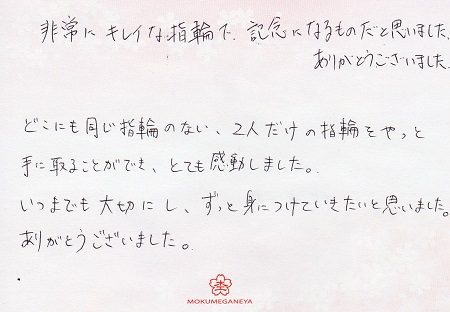 非常にキレイな指輪で、記念になるものだと思いました。
ありがとうございました。
どこにも同じ指輪のない、2人だけの指輪をやっと
手に取ることができ、とても感動しました。
いつまでも大切にし、ずっと身につけていきたいと思いました。
ありがとうございました。
MOKUMEGANEYA